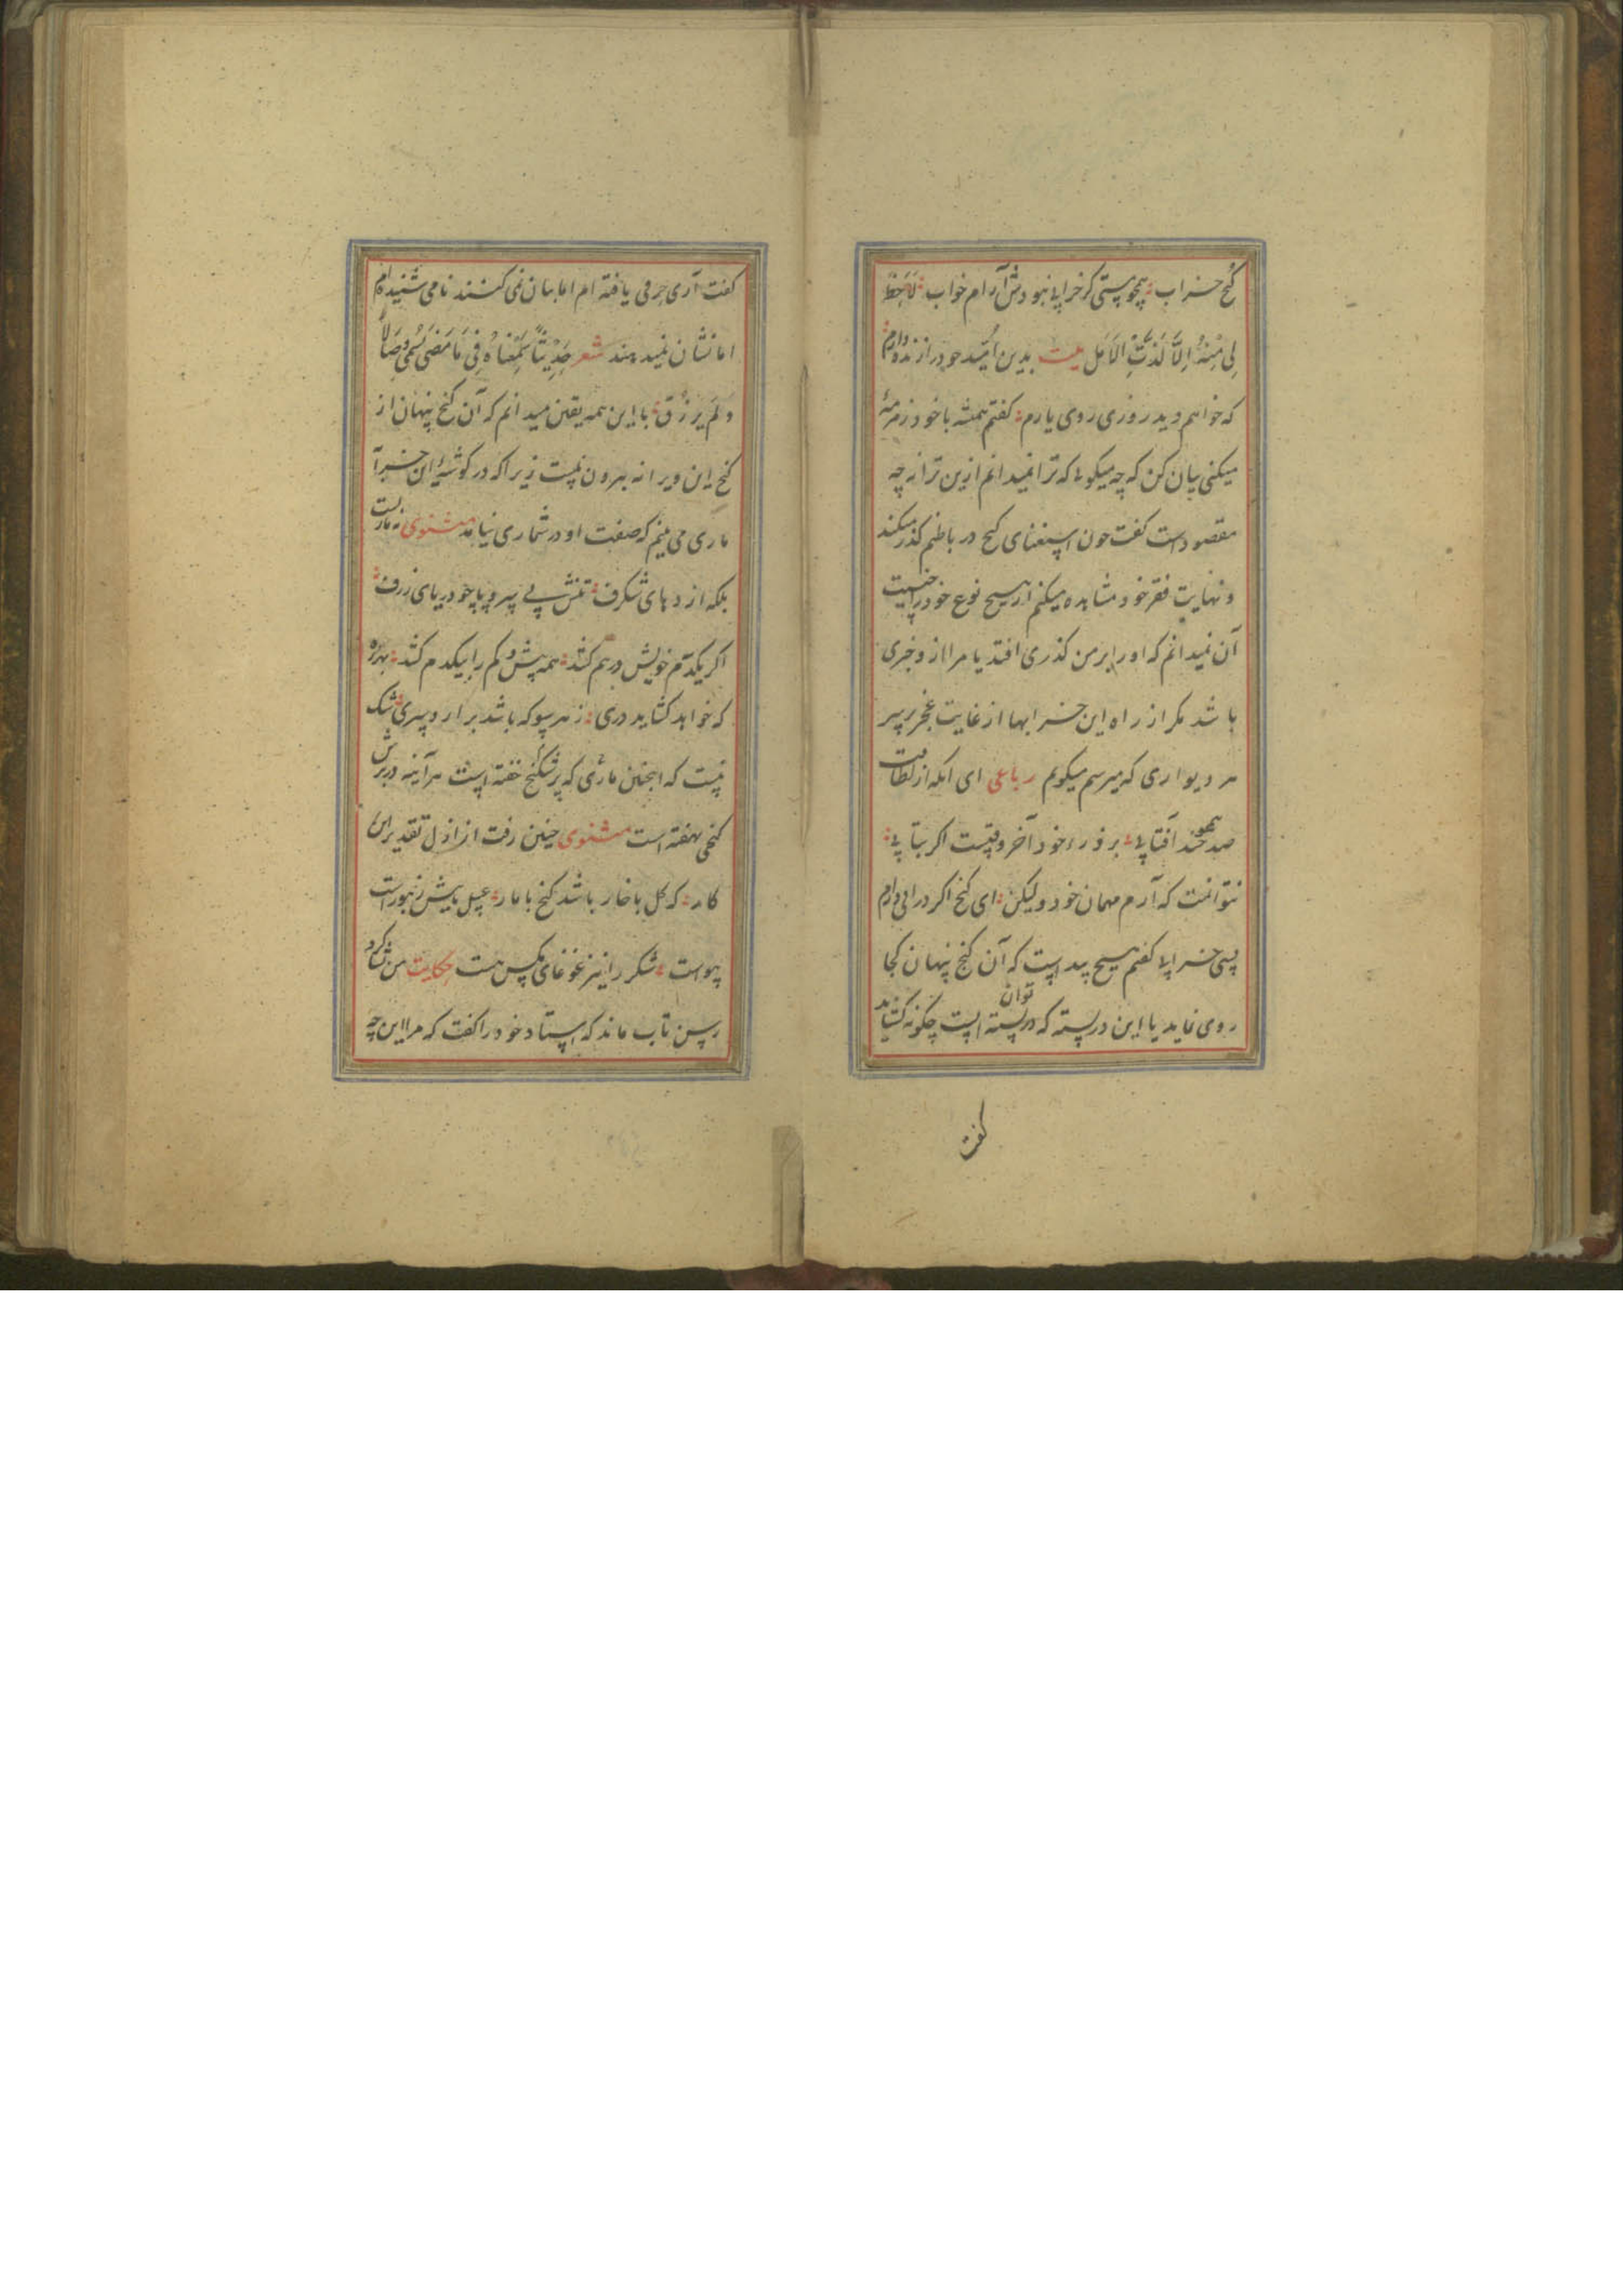 کنج خراب همچو مستی کز خرابی نبودش آرام خواب لَاحَظَّ
لِی مِنْهُ اِلَّا لَذَّتُ الْاَمَلِ بیت بدین امید خود را زنده دارم
که خواهم دید روزی روی یارم کفتم همیشه با خود زمزمهٔ
میکنی بیان کن که چه میکویی که ترا نمیدانم ازین ترانه چه
مقصود است کفت چون استغنای کنج در باطنم کذر میکند
و نهایت فقر خود مشاهده میکنم از هیچ نوع خود را
آن نمیدانم که او را بر من کذری افتد یا مرا از و خبری
باشد مکر از راه این خرابها از غایت عجز بر سر
هر دیواری که میرسم میکویم رباعی ای انکه از لطافت
صد همچو آفتابی بر ذرهٔ خود آخر وقتست اکر بتابی
نتوانمت که آرم مهمان خود ولیکن ای کنج اکر درآیی دارم
پسی خرابی کفتم هیچ پیداست که آن کنج پنهان کجا
روی نماید یا این در بسته که در بسته است چکونه توان کشاید
کفت
کفت آری حرفی یافته ام اما بیان نمی کنند نامی شنیده ام
اما نشان نمیدهند شعر حَدِیثًا سَمِعْنَاهُ فِی مَا مَضَی یُسَمّی وِصَالًا
وَ لَم یُرْزَق با این همه یقین میدانم که آن کنج پنهان از
کنج این ویرانه بیرون نیست زیرا که در کوشهٔ این خرابه
ماری می بینم که صفت او در شماری نیامد مثنوی نه مارست
بلکه اژدهای شکرف تنش بی سر و پا چو دریای ژرف
اکر یکدم خویش در هم کشد همه بیش و کم را بیکدم کشد بهر ره
که خواهد کشاید دری ز هر سو که باشد برارد سری شک
نیست که اینچنین ماری که پر شکنج خفته است هرآینه در برش
کنجی نهفته است مثنوی چنین رفت از ازل تقدیر این
کار که کل با خار باشد کنج با مار عسل با نیش زنبورست
پیوست شکر را نیز غوغای مکس هست حکایت من شاکرد
رسن تاب ماند که استاد خود را کفت که مرا این چه